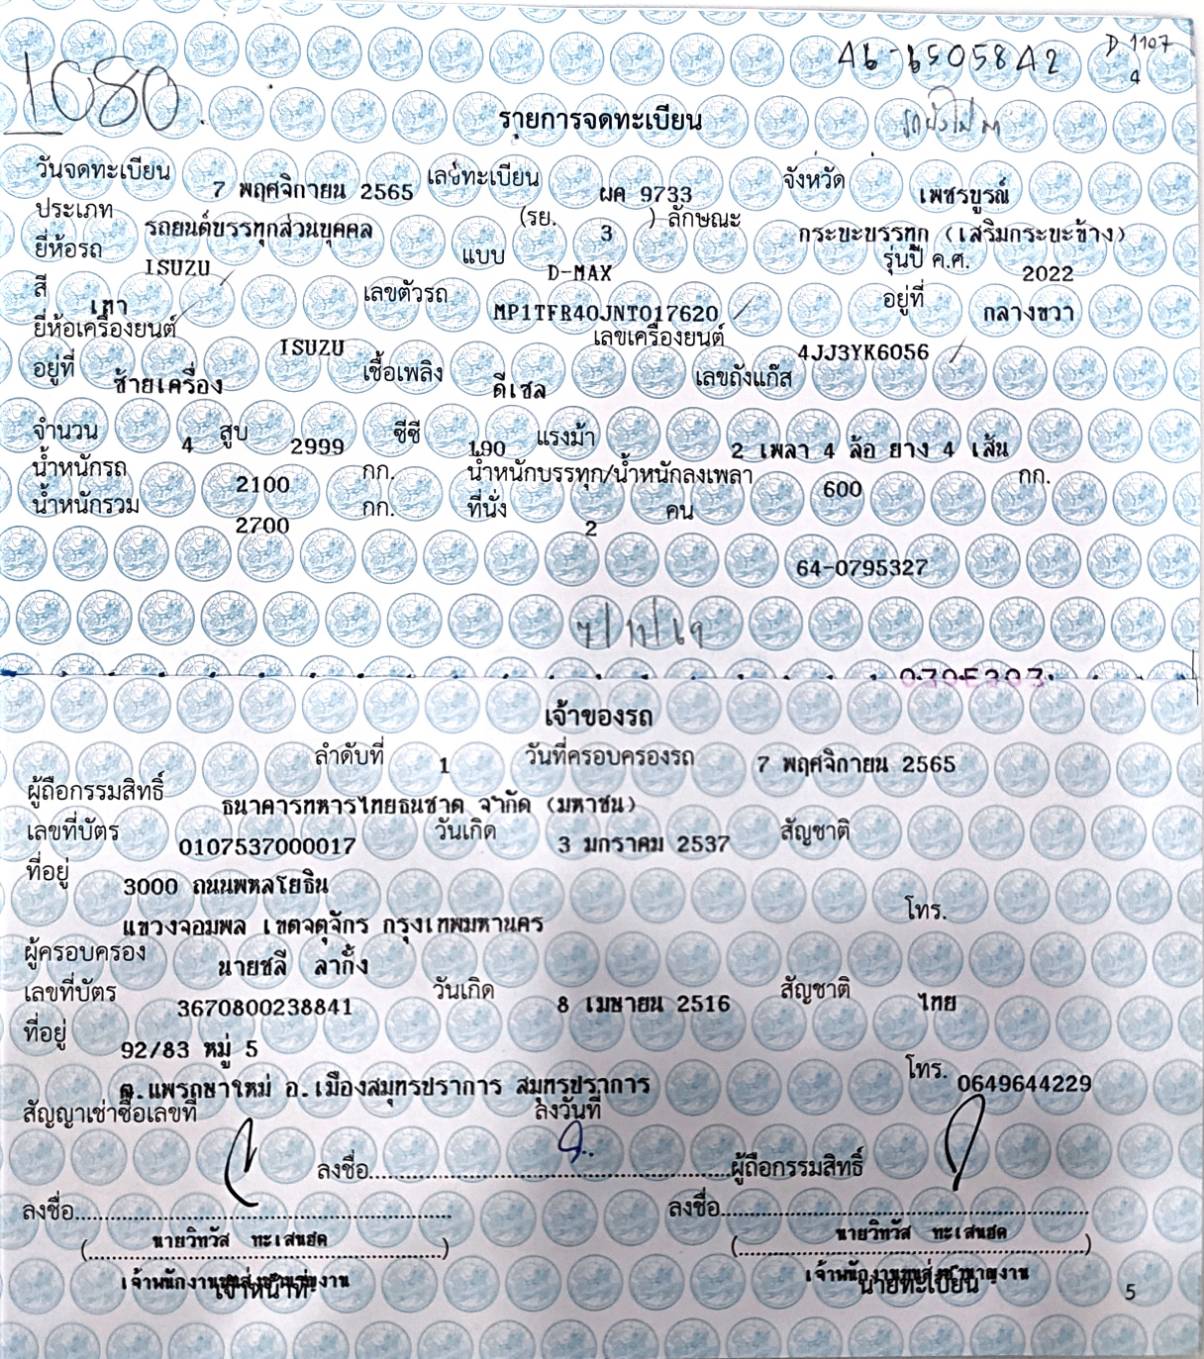 1080.
A6-65058A2
D 1107
4
รายการจดทะเบียน
วันจดทะเบียน 7 พฤศจิกายน 2565 เลขทะเบียน ผค 9733 จังหวัด เพชรบูรณ์
ประเภท รถยนต์บรรทุกส่วนบุคคล (รย. 3 ) ลักษณะ กระบะบรรทุก (เสริมกระบะข้าง)
ยี่ห้อรถ ISUZU แบบ D-MAX รุ่นปี ค.ศ. 2022
สี เทา เลขตัวรถ MP1TFR40JNT017620 อยู่ที่ กลางขวา
ยี่ห้อเครื่องยนต์ ISUZU เลขเครื่องยนต์ 4JJ3YK6056
อยู่ที่ ซ้ายเครื่อง เชื้อเพลิง ดีเซล เลขถังแก๊ส
จำนวน 4 สูบ 2999 ซีซี 190 แรงม้า 2 เพลา 4 ล้อ ยาง 4 เส้น
น้ำหนักรถ 2100 กก. น้ำหนักบรรทุก/น้ำหนักลงเพลา 600 กก.
น้ำหนักรวม 2700 กก. ที่นั่ง 2 คน
64-0795327
7/11/69
เจ้าของรถ
ลำดับที่ 1 วันที่ครอบครองรถ 7 พฤศจิกายน 2565
ผู้ถือกรรมสิทธิ์ ธนาคารทหารไทยธนชาต จำกัด (มหาชน)
เลขที่บัตร 0107537000017 วันเกิด 3 มกราคม 2537 สัญชาติ
ที่อยู่ 3000 ถนนพหลโยธิน
แขวงจอมพล เขตจตุจักร กรุงเทพมหานคร โทร.
ผู้ครอบครอง นายชลี ลากั้ง
เลขที่บัตร 3670800238841 วันเกิด 8 เมษายน 2516 สัญชาติ ไทย
ที่อยู่ 92/83 หมู่ 5
ต.แพรกษาใหม่ อ.เมืองสมุทรปราการ สมุทรปราการ โทร. 0649644229
สัญญาเช่าซื้อเลขที่ ลงวันที่
ลงชื่อ ผู้ถือกรรมสิทธิ์
ลงชื่อ ลงชื่อ
(นายวิทวัส ทะเสนฮด) (นายวิทวัส ทะเสนฮด)
เจ้าพนักงานขนส่งชำนาญงาน เจ้าพนักงานขนส่งชำนาญงาน
เจ้าหน้าที่ นายทะเบียน 5